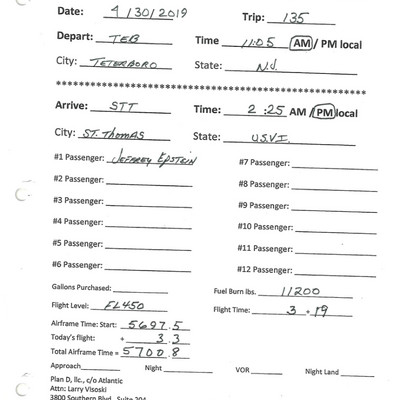 Date: 4/30/2019 Trip: 135
Depart: TEB Time 11:05 AM / PM local
City: TETERBORO State: N.J.
******************************************************
Arrive: STT Time: 2:25 AM / PM local
City: ST. THOMAS State: U.S.V.I.
#1 Passenger: JEFFREY EPSTEIN #7 Passenger:
#2 Passenger: #8 Passenger:
#3 Passenger: #9 Passenger:
#4 Passenger: #10 Passenger:
#5 Passenger: #11 Passenger:
#6 Passenger: #12 Passenger:
Gallons Purchased: Fuel Burn lbs. 11200
Flight Level: FL450 Flight Time: 3 + 19
Airframe Time: Start: 5697.5
Today's flight: + 3.3
Total Airframe Time = 5700.8
Approach Night VOR Night Land
Plan D, llc., c/o Atlantic
Attn: Larry Visoski
3800 Southern Blvd., Suite 204